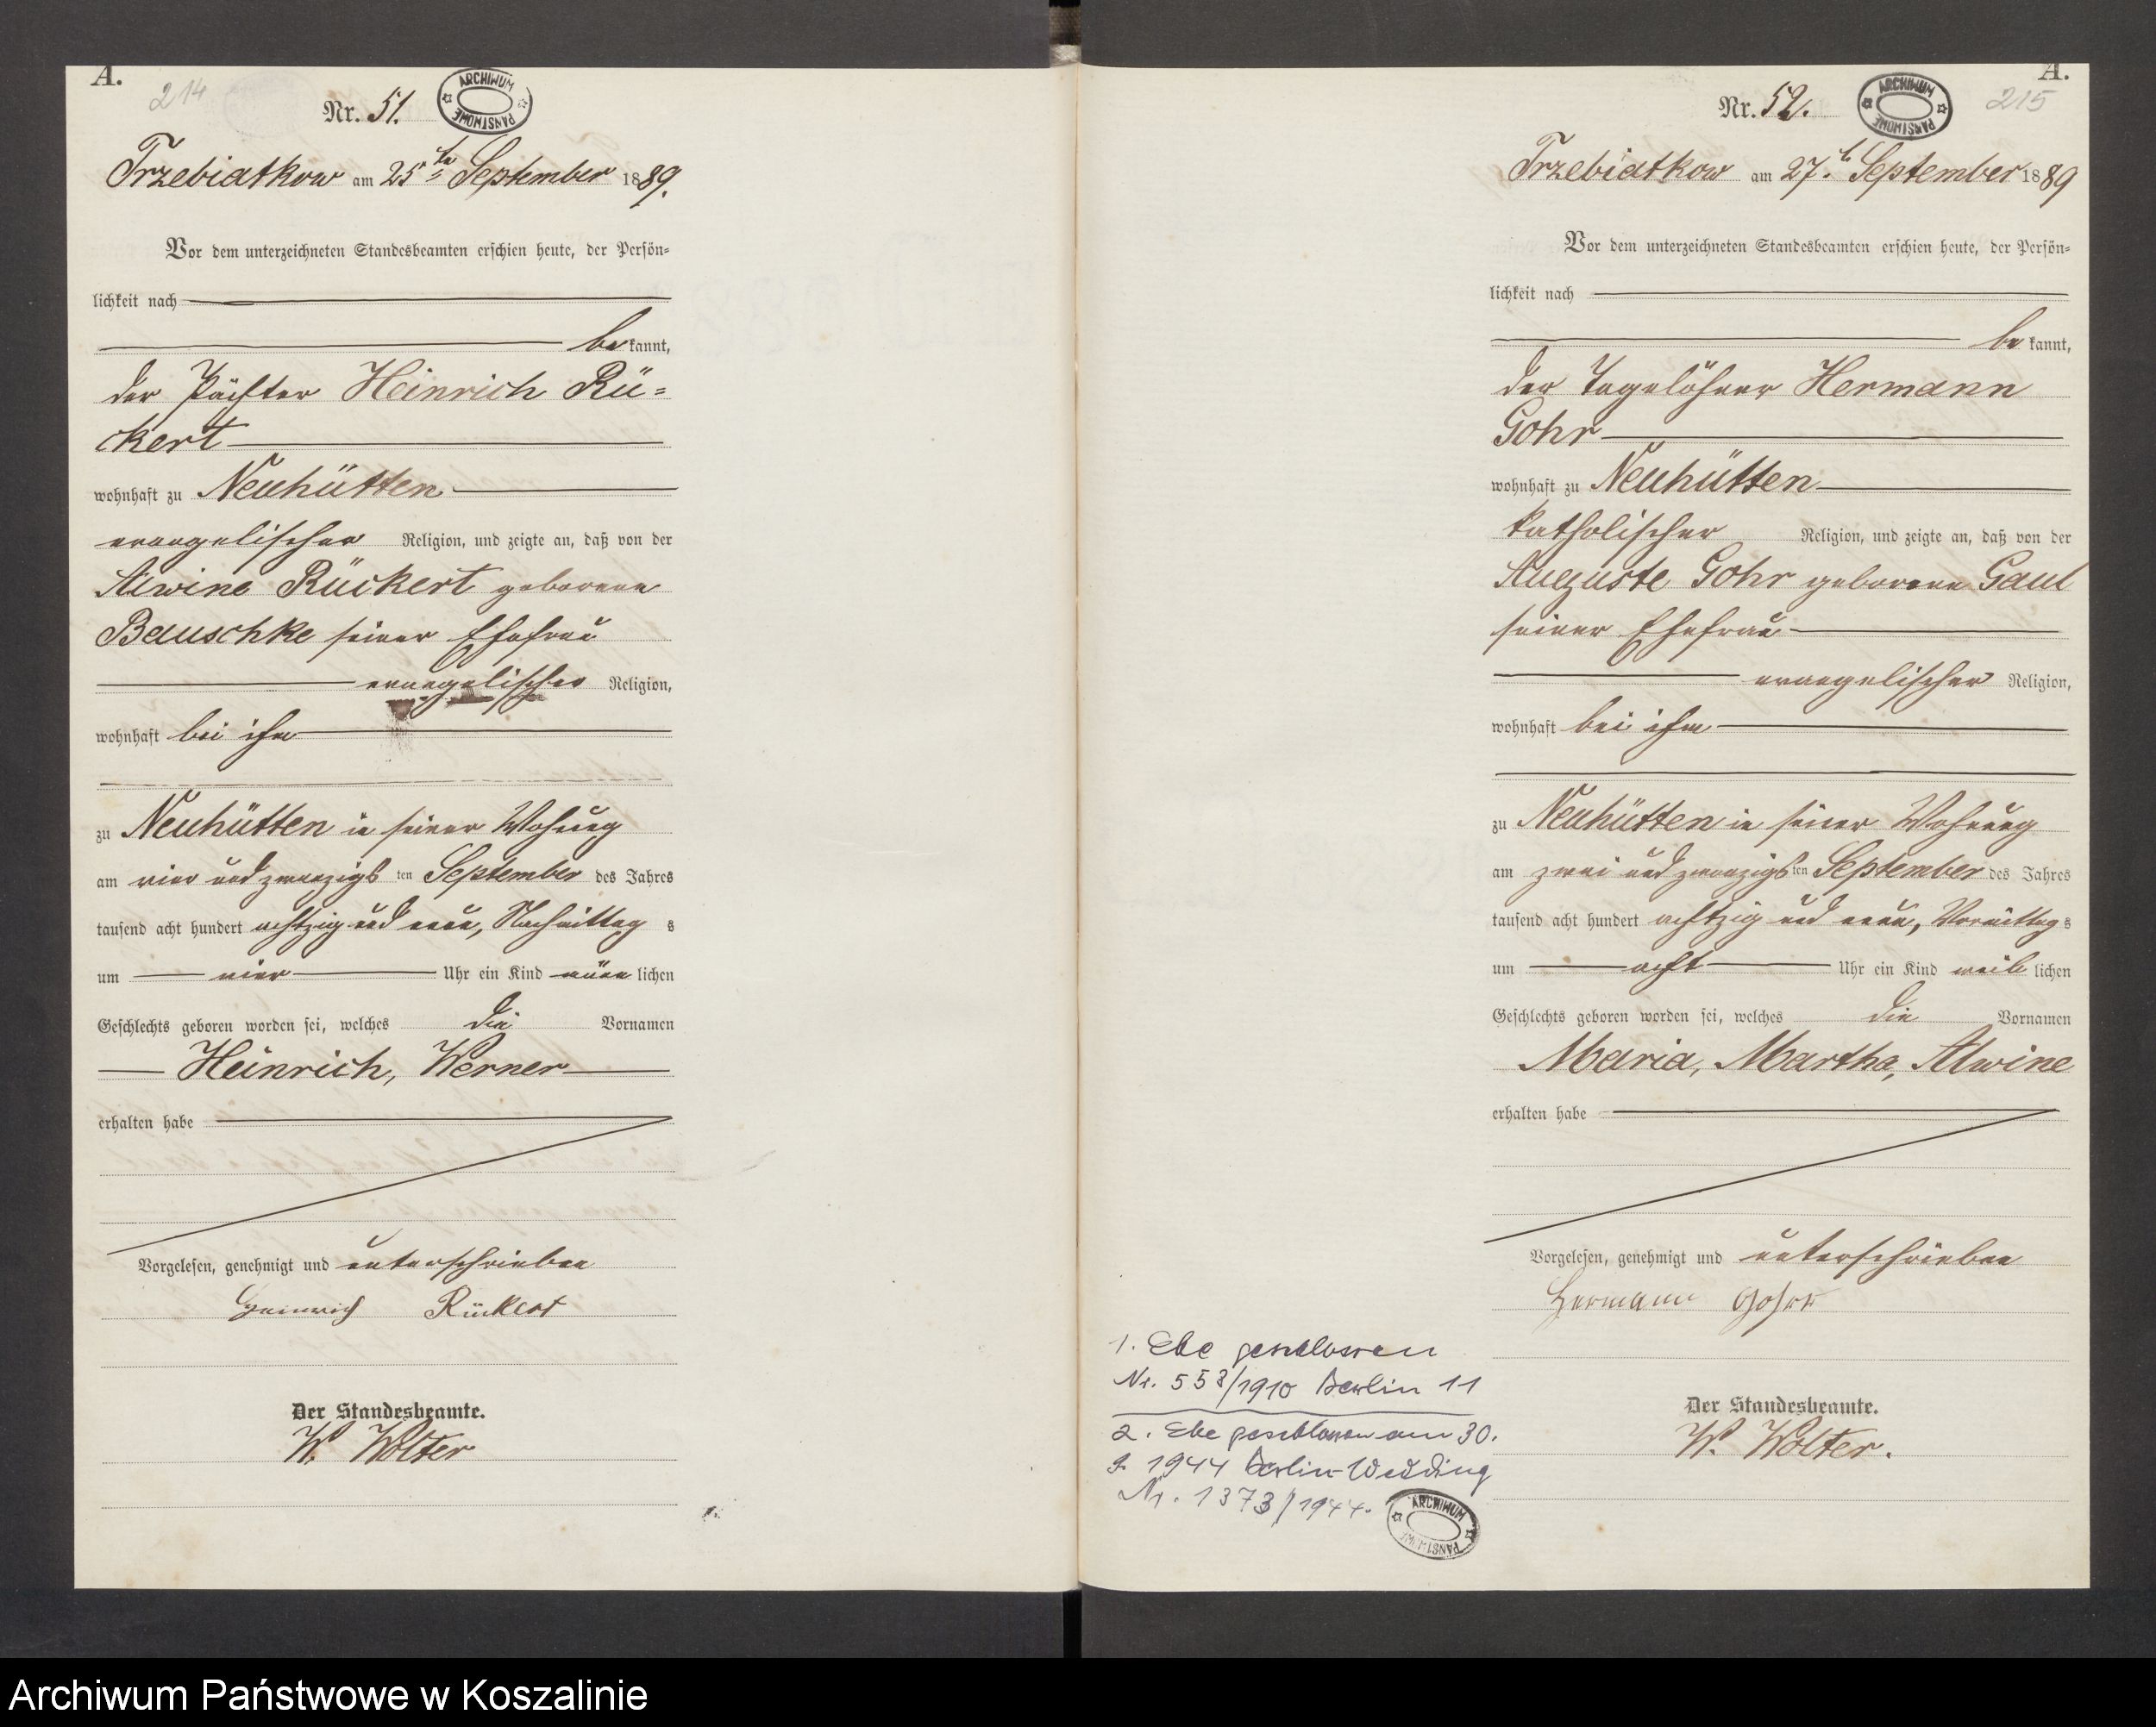 A.
214
Nr. 51.
ARCHIWUM PAŃSTWOWE
Trzebiatkow am 25ten September 1889.
Vor dem unterzeichneten Standesbeamten erschien heute, der Persön-
lichkeit nach
bekannt,
der Pächter Heinrich Rü-
ckert
wohnhaft zu Neuhütten
evangelischer Religion, und zeigte an, daß von der
Alwine Rückert geborene
Bauschke seiner Ehefrau
evangelischer Religion,
wohnhaft bei ihm
zu Neuhütten in seiner Wohnung
am vier und zwanzigsten September des Jahres
tausend acht hundert achtzig und neun, Nachmittags
um vier Uhr ein Kind männlichen
Geschlechts geboren worden sei, welches die Vornamen
Heinrich, Werner
erhalten habe
Vorgelesen, genehmigt und unterschrieben
Heinrich Rückert
Der Standesbeamte.
W. Wolter
A.
215
Nr. 52.
ARCHIWUM PAŃSTWOWE
Trzebiatkow am 27. September 1889
Vor dem unterzeichneten Standesbeamten erschien heute, der Persön-
lichkeit nach
bekannt,
der Tagelöhner Hermann
Gohr
wohnhaft zu Neuhütten
katholischer Religion, und zeigte an, daß von der
Auguste Gohr geborene Gaul
seiner Ehefrau
evangelischer Religion,
wohnhaft bei ihm
zu Neuhütten in seiner Wohnung
am zwei und zwanzigsten September des Jahres
tausend acht hundert achtzig und neun, Vormittags
um acht Uhr ein Kind weiblichen
Geschlechts geboren worden sei, welches die Vornamen
Maria, Martha, Alwine
erhalten habe
Vorgelesen, genehmigt und unterschrieben
Hermann Gohr
Der Standesbeamte.
W. Wolter.
1. Ehe geschlossen
Nr. 558/1910 Berlin 11
2. Ehe geschlossen am 30.
9. 1944 Berlin-Wedding
Nr. 1373/1944.
ARCHIWUM PAŃSTWOWE
Archiwum Państwowe w Koszalinie